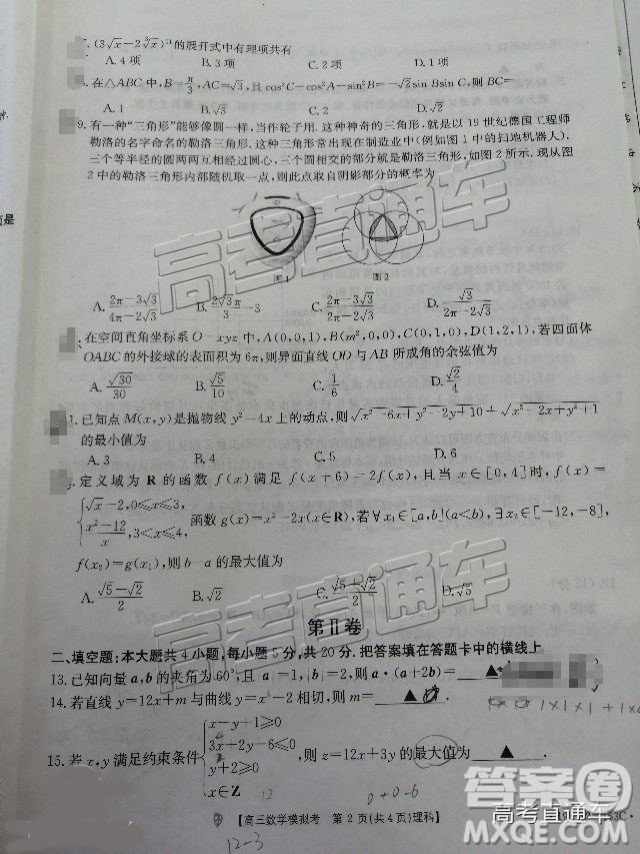 . (3√x-2∛x)¹¹的展开式中有理项共有
A. 4 项 B. 3 项 C. 2 项 D. 1 项
. 在△ABC 中, B=π/3, AC=√3, 且 cos²C-cos²A-sin²B=-√2sin Bsin C, 则 BC=
A. 1 B. √2 C. √3
9. 有一种“三角形”能够像圆一样, 当作轮子用. 这种神奇的三角形, 就是以 19 世纪德国工程师
勒洛的名字命名的勒洛三角形. 这种三角形常出现在制造业中(例如图 1 中的扫地机器人).
三个等半径的圆两两互相经过圆心, 三个圆相交的部分就是勒洛三角形, 如图 2 所示. 现从图
2 中的勒洛三角形内部随机取一点, 则此点取自阴影部分的概率为
高考直通车
图 1 图 2
A. (2π-3√3)/(4π-2√3) B. 2√3π/3-3 C. (2π-3√3)/(2π-2√3) D. √3/(2π-2√3)
. 在空间直角坐标系 O-xyz 中, A(0,0,1), B(m²,0,0), C(0,1,0), D(1,2,1), 若四面体
OABC 的外接球的表面积为 6π, 则异面直线 OD 与 AB 所成角的余弦值为
A. √30/30 B. √5/10 C. 1/6 D. √2/4
1. 已知点 M(x,y)是抛物线 y²=4x 上的动点, 则√(x²-6x+y²-2y+10)+√(x²-2x+y²+1)
的最小值为
A. 3 B. 4 C. 5 D. 6
. 定义域为 R 的函数 f(x)满足 f(x+6)=2f(x), 且当 x∈[0,4]时, f(x)=
{√x-2, 0≤x≤3,
(x²-12)/x, 3<x≤4, 函数 g(x)=x²-2x(x∈R), 若∀x₁∈[a,b](a<b), ∃x₂∈[-12,-8],
f(x₂)=g(x₁), 则 b-a 的最大值为
A. (√5-√2)/2 B. √2 C. (√5+√2)/2 D. √5
高考直通车
第Ⅱ卷
二、填空题: 本大题共 4 小题, 每小题 5 分, 共 20 分. 把答案填在答题卡中的横线上
13. 已知向量 a, b 的夹角为 60°, 且|a|=1, |b|=2, 则 a·(a+2b)= ▲
14. 若直线 y=12x+m 与曲线 y=x³-2 相切, 则 m= ▲ .
15. 若 x, y 满足约束条件{x-y+1≥0
3x+2y-6≤0
y+2≥0
x∈Z
, 则 z=12x+3y 的最大值为 ▲
12
0+0-6
【高三数学模拟考 第 2 页(共 4 页)理科】
12-3
答案圈
高考直通车